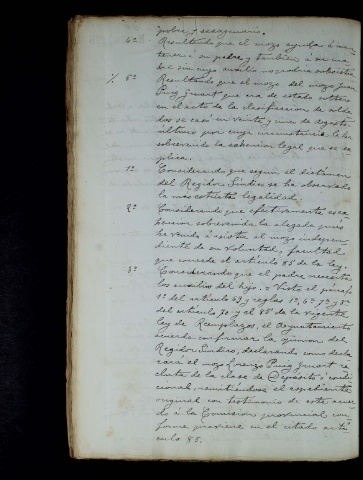 pobre y sexagenario.
4º Resultando que el mozo ayudar á man-
tener á su padre y tambien á su ma-
dre sin cuyo auxilio no podria subsistir
5º Resultando que el mozo del mozo Juan
Puig Juvart que era de estado soltero
en el acto de la clasificacion de solda-
dos se casó en veinte y cinco de Agosto
ultimo por cuya circunstancia le ha
sobrevenido la exencion legal que se es-
plica.
1º Considerando que segun el dictámen
del Regidor Síndico se ha observado
la mas estricta legalidad.
2º Considerando que efectivamente es ex-
cencion sobrevenida la alegada pues
ha venido á existir el mozo indepen-
diente de su voluntad, facultad
que concede el artículo 85 de la ley.
3º Considerando que el padre necesita
los auxilios del hijo. = Visto el párrafo
1º del artículo 69, y reglas 1ª, 6ª 7ª y 8ª
del artículo 70 y el 85 de la vigente
Ley de Reemplazos, el Ayuntamiento
acuerda confirmar la opinion del
Regidor Síndico, declarando como decla-
rará el mozo Lorenzo Puig Juvart re-
cluta de la clase de Depósito ó condi-
cional, remitiéndose el espediente
original con testimonio de este acuer-
do á la Comision provincial con-
forme previene en el citado artí-
culo 85.